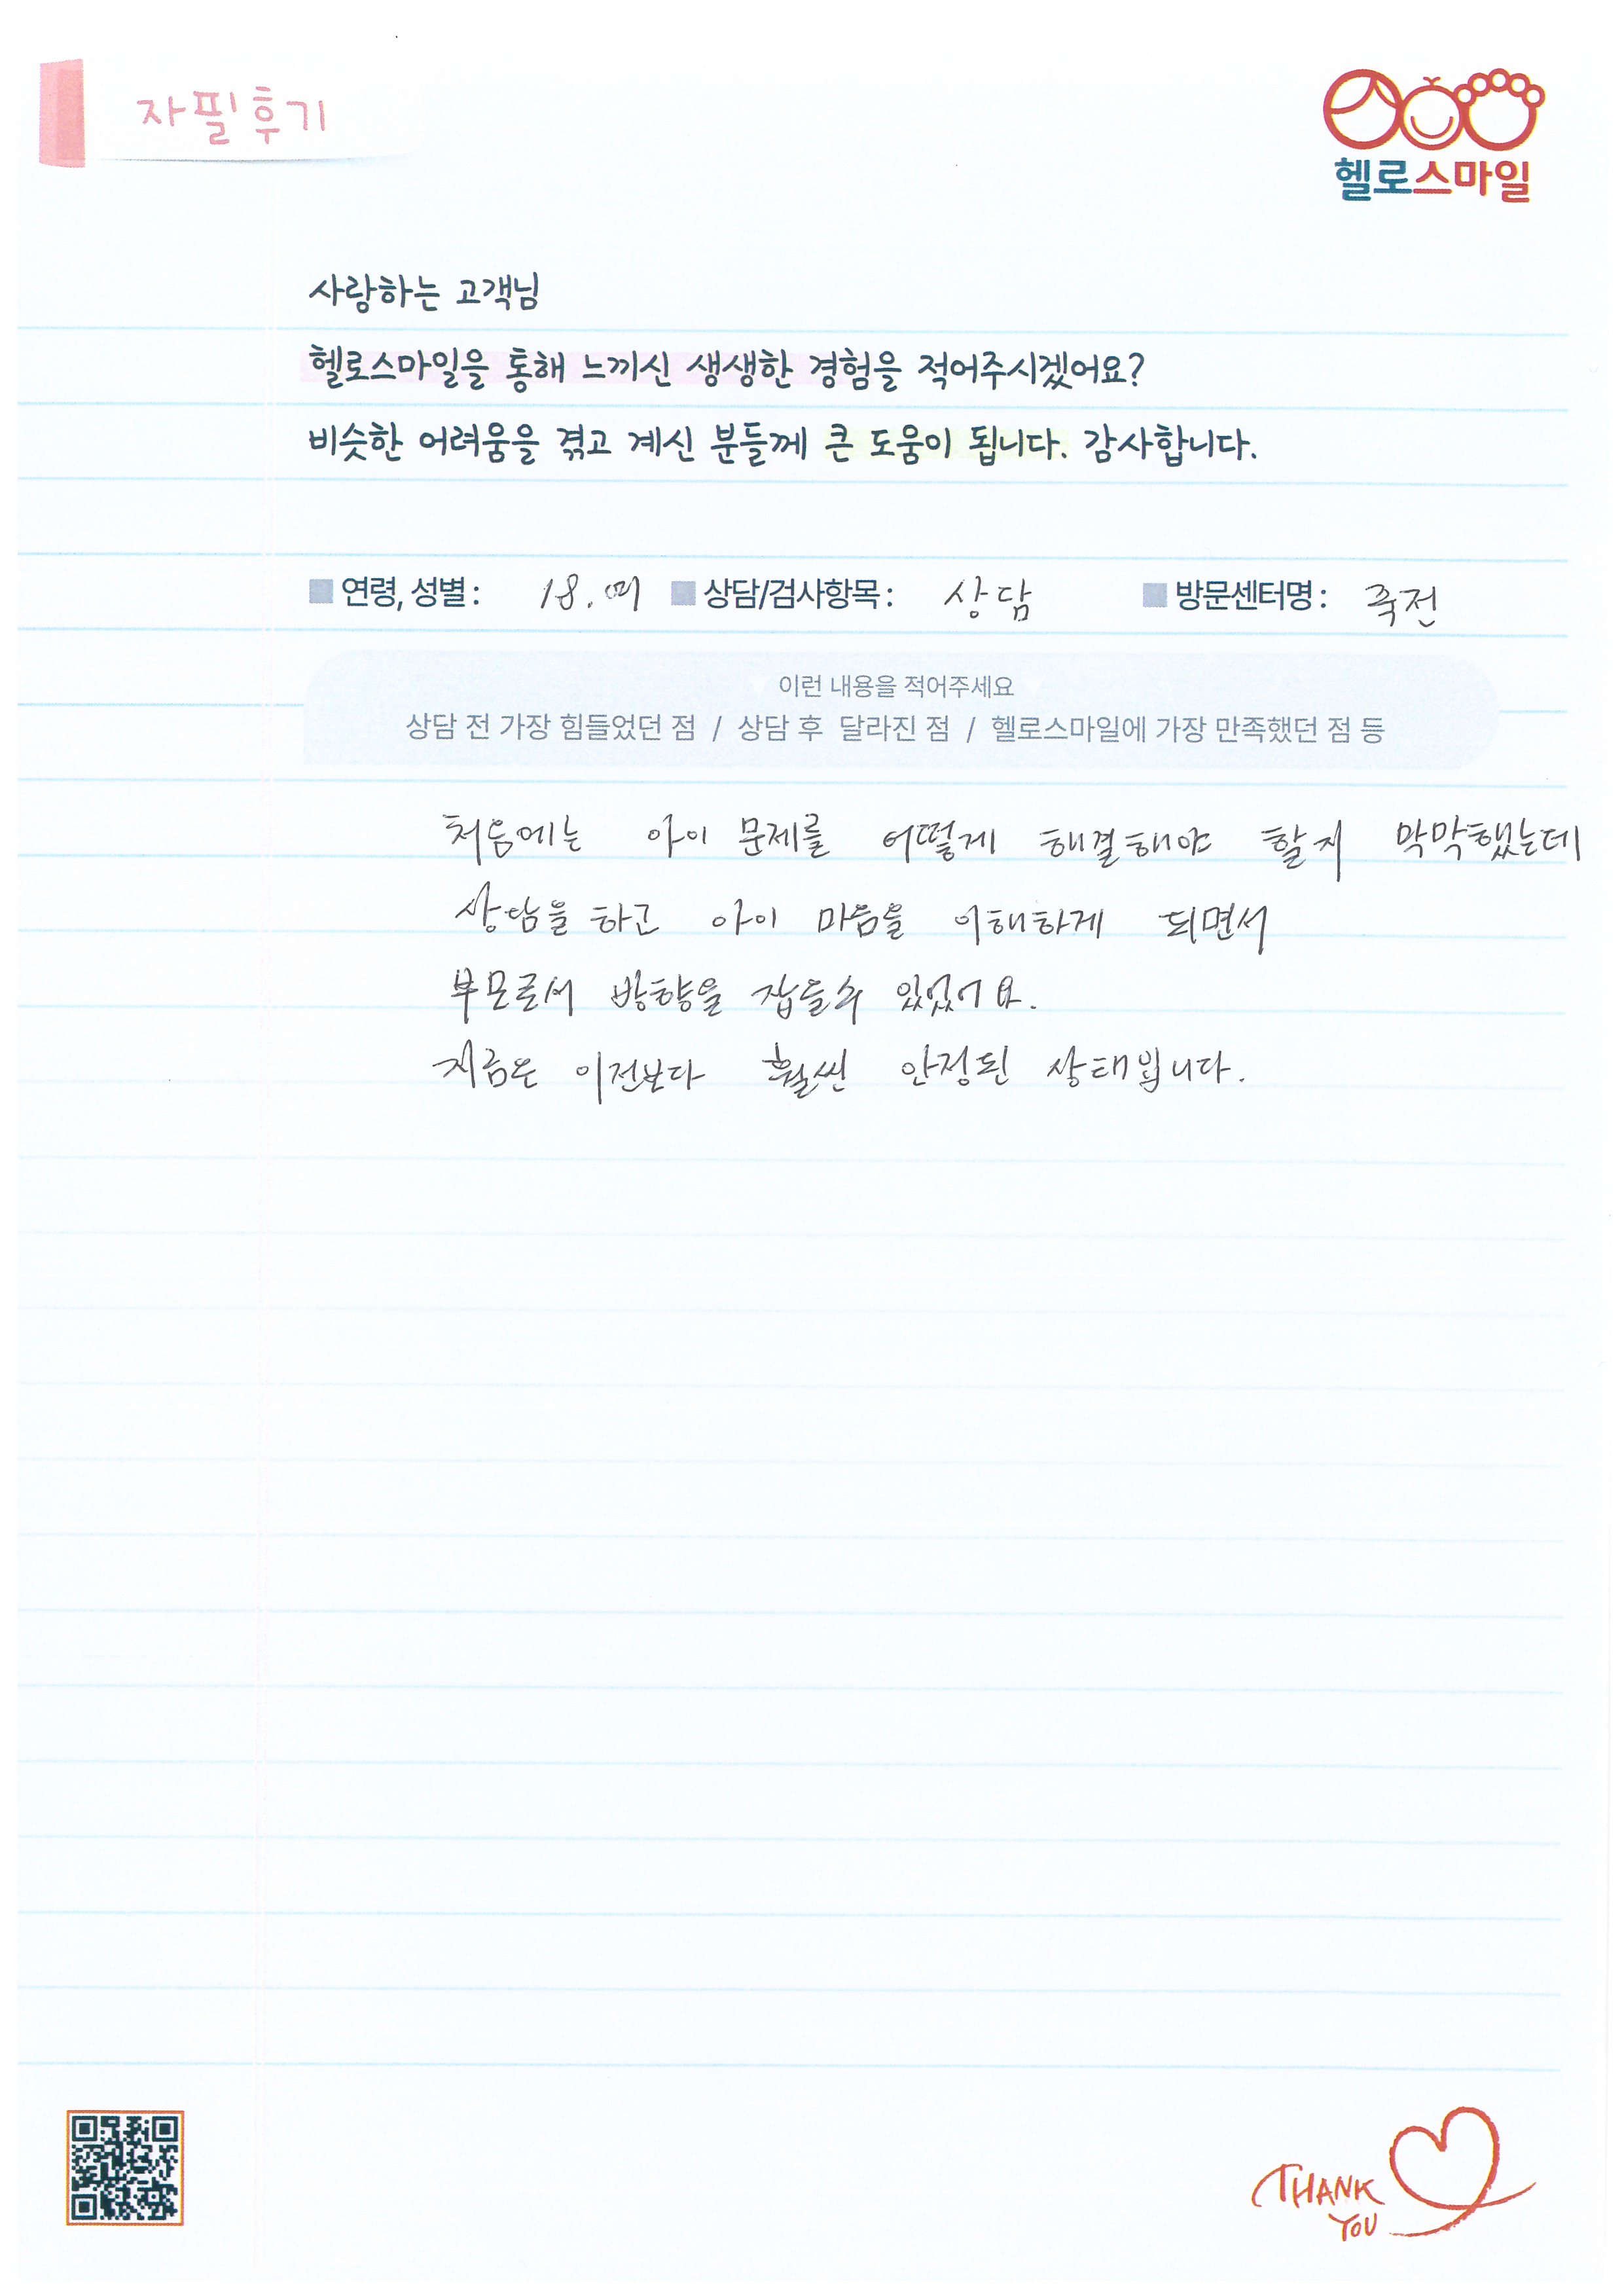 자필후기
헬로스마일
사랑하는 고객님
헬로스마일을 통해 느끼신 생생한 경험을 적어주시겠어요?
비슷한 어려움을 겪고 계신 분들께 큰 도움이 됩니다. 감사합니다.
연령, 성별 : 18. 여 상담/검사항목 : 상담 방문센터명 : 죽전
이런 내용을 적어주세요
상담 전 가장 힘들었던 점 / 상담 후 달라진 점 / 헬로스마일에 가장 만족했던 점 등
처음에는 아이 문제를 어떻게 해결해야 할지 막막했는데
상담을 하고 아이 마음을 이해하게 되면서
부모로서 방향을 잡을수 있었어요.
지금은 이전보다 훨씬 안정된 상태입니다.
THANK
YOU